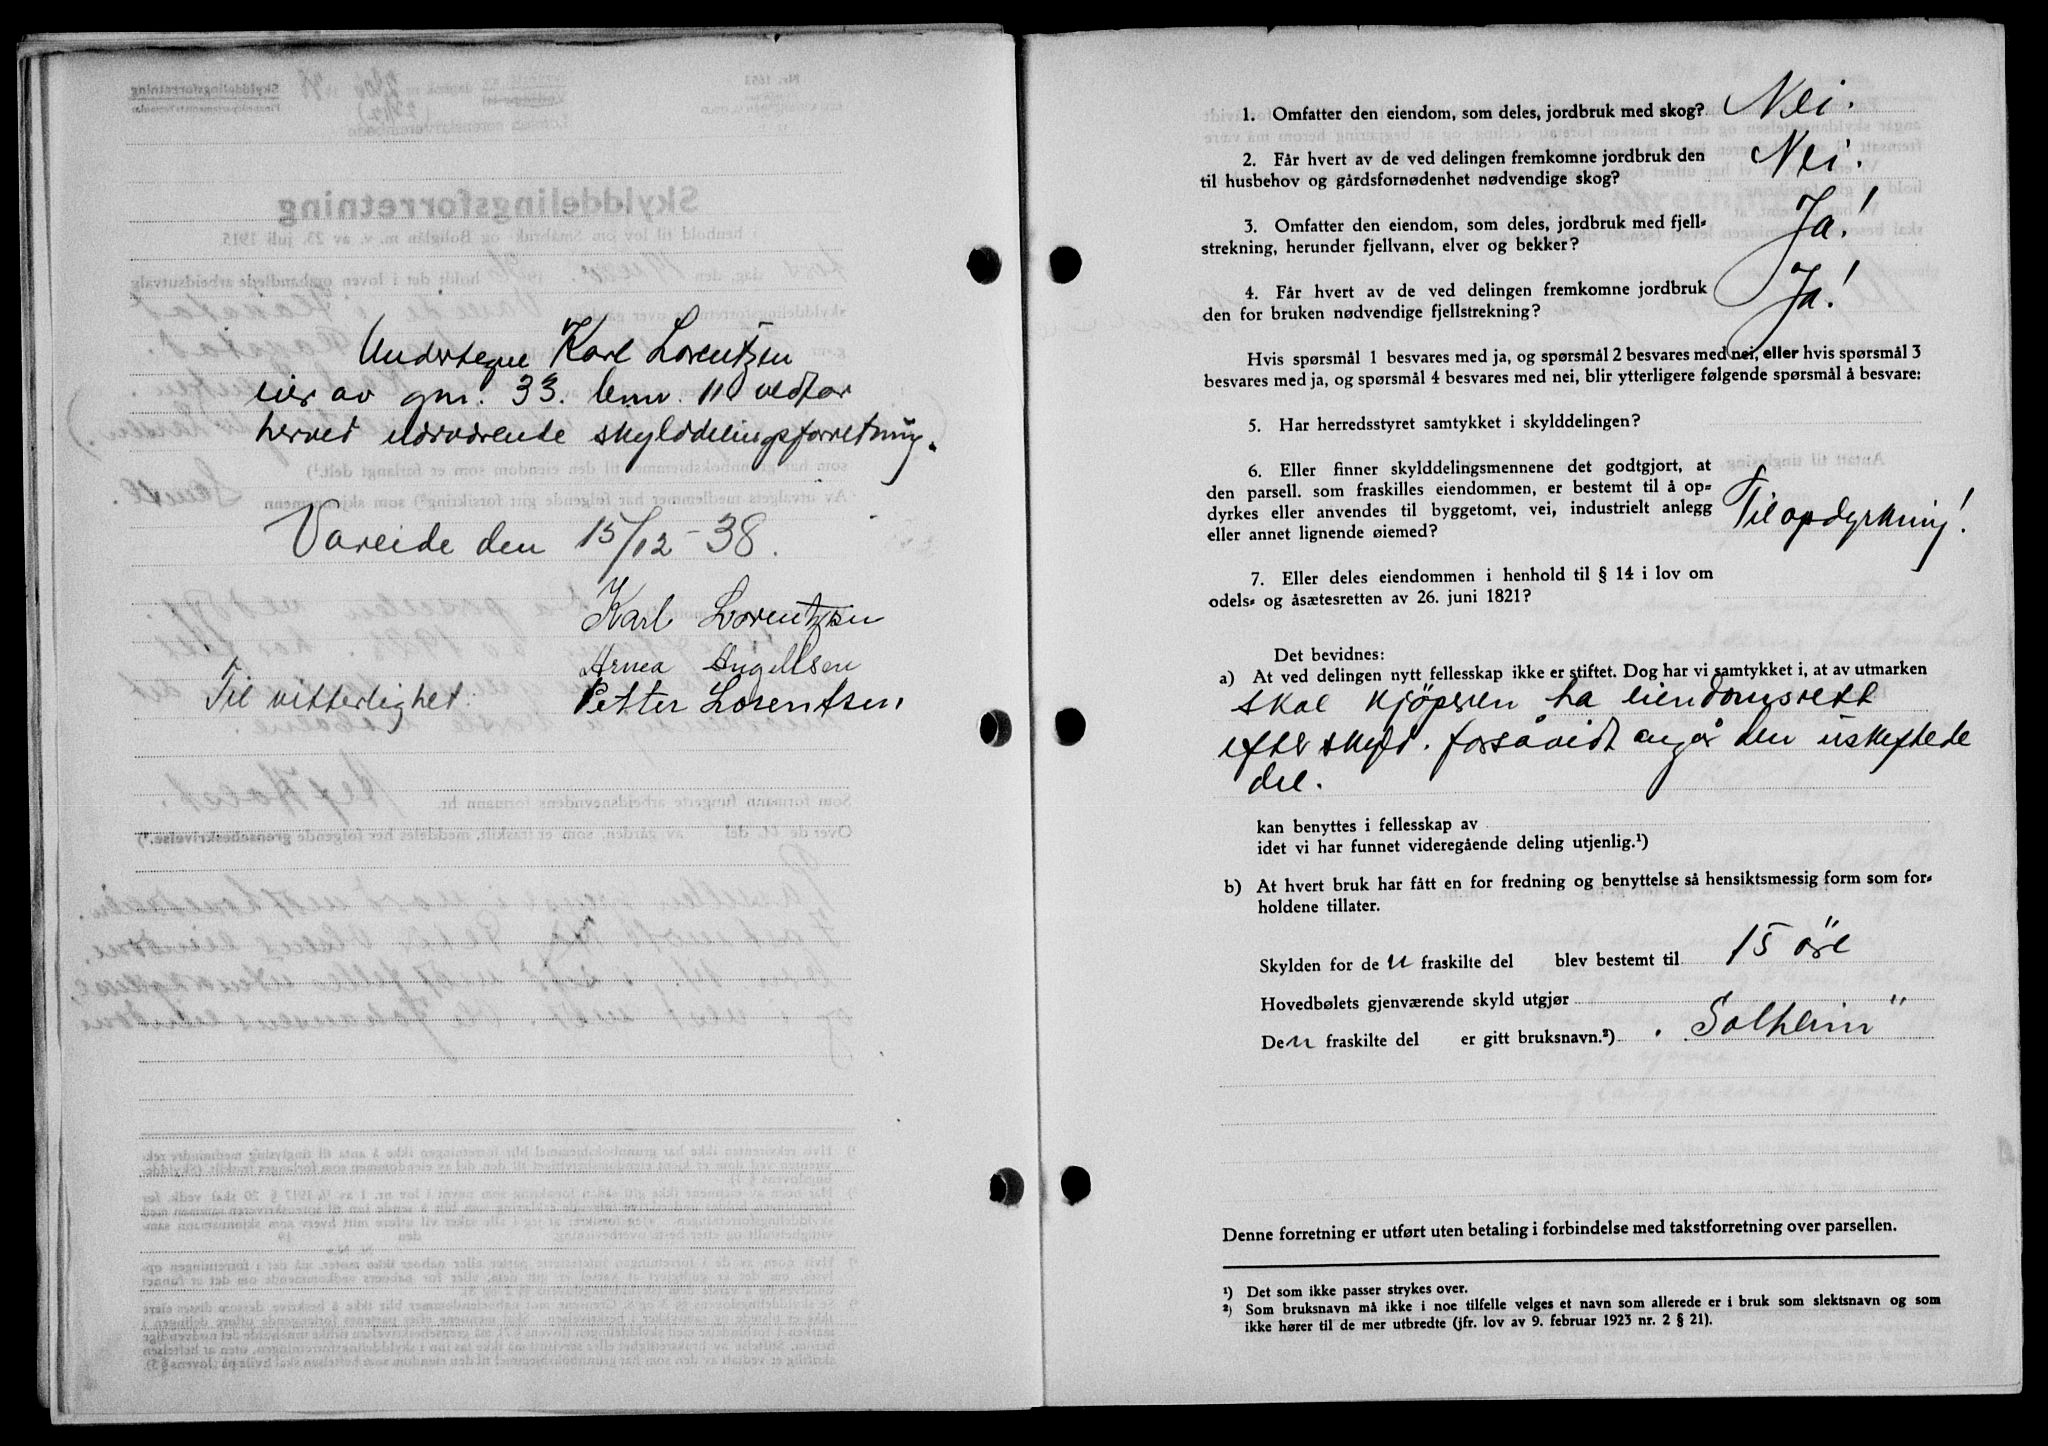 Undertegne Karl Lorentzen
eier av gnr. 33. bnr. 11 vedtar
herved nærværende skylddelingsforretning.
Vareide den 15/12-38.
Karl Lorentzen
Arnea Angellsen
Til vitterlighet: Petter Lorentsen
1. Omfatter den eiendom, som deles, jordbruk med skog? Nei.
2. Får hvert av de ved delingen fremkomne jordbruk den
til husbehov og gårdsfornødenhet nødvendige skog? Nei.
3. Omfatter den eiendom, som deles, jordbruk med fjell-
strekning, herunder fjellvann, elver og bekker? Ja!
4. Får hvert av de ved delingen fremkomne jordbruk
den for bruken nødvendige fjellstrekning? Ja!
Hvis spørsmål 1 besvares med ja, og spørsmål 2 besvares med nei, eller hvis spørsmål 3
besvares med ja, og spørsmål 4 besvares med nei, blir ytterligere følgende spørsmål å besvare:
5. Har herredsstyret samtykket i skylddelingen?
6. Eller finner skylddelingsmennene det godtgjort, at
den parsell. som fraskilles eiendommen, er bestemt til å op-
dyrkes eller anvendes til byggetomt, vei, industrielt anlegg
eller annet lignende øiemed? Til opdyrkning!
7. Eller deles eiendommen i henhold til § 14 i lov om
odels- og åsætesretten av 26. juni 1821?
Det bevidnes:
a) At ved delingen nytt fellesskap ikke er stiftet. Dog har vi samtykket i, at av utmarken
skal kjøperen ha eiendomsrett
efter skyld. forsåvidt angår den uskiftede
del.
kan benyttes i fellesskap av
idet vi har funnet videregående deling utjenlig.¹)
b) At hvert bruk har fått en for fredning og benyttelse så hensiktsmessig form som for-
holdene tillater.
Skylden for den fraskilte del blev bestemt til 15 öre
Hovedbølets gjenværende skyld utgjør
Den fraskilte del er gitt bruksnavn.²) "Solheim"
Denne forretning er utført uten betaling i forbindelse med takstforretning over parsellen.
¹) Det som ikke passer strykes over.
²) Som bruksnavn må ikke i noe tilfelle velges et navn som allerede er i bruk som slektsnavn og som
ikke hører til de mer utbredte (jfr. lov av 9. februar 1923 nr. 2 § 21).